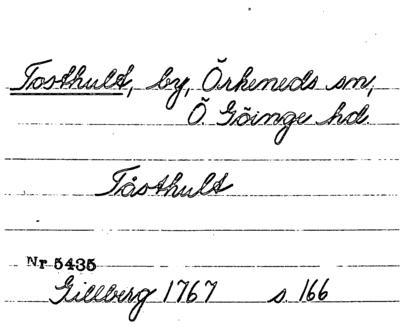 Tosthult, by, Örkeneds sn,
Ö. Göinge hd.
Tåsthult
Nr 5435
Gillberg 1767 s. 166